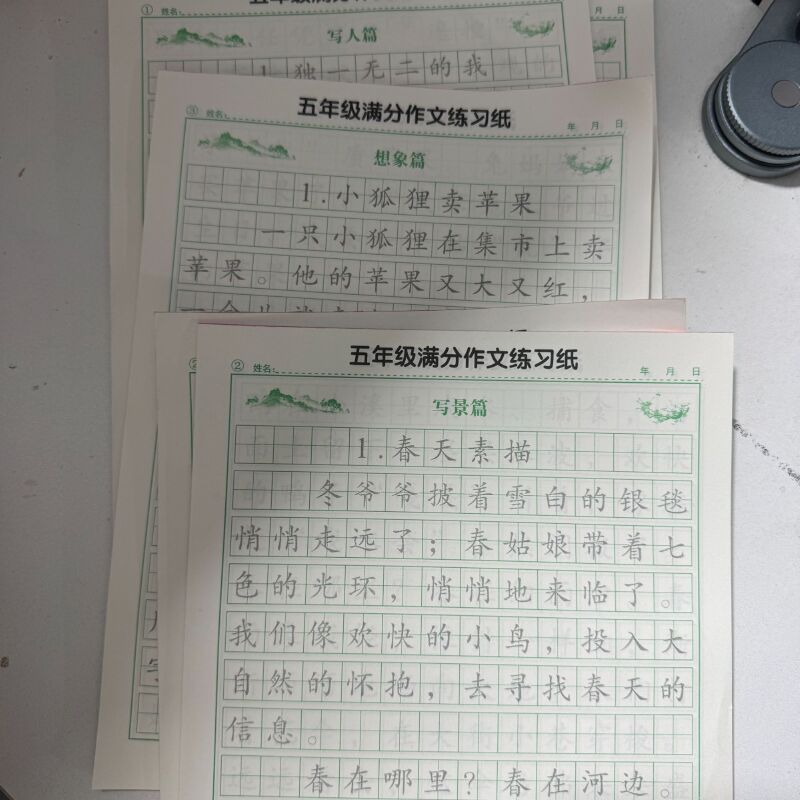 ① 姓名:
写人篇
1.独一无二的我
五年级满分作文练习纸
③ 姓名: 年 月 日
想象篇
1.小狐狸卖苹果
一只小狐狸在集市上卖
苹果。他的苹果又大又红，
五年级满分作文练习纸
② 姓名: 年 月 日
写景篇
1.春天素描
冬爷爷披着雪白的银毯
悄悄走远了；春姑娘带着七
色的光环，悄悄地来临了。
我们像欢快的小鸟，投入大
自然的怀抱，去寻找春天的
信息。
春在哪里？春在河边。